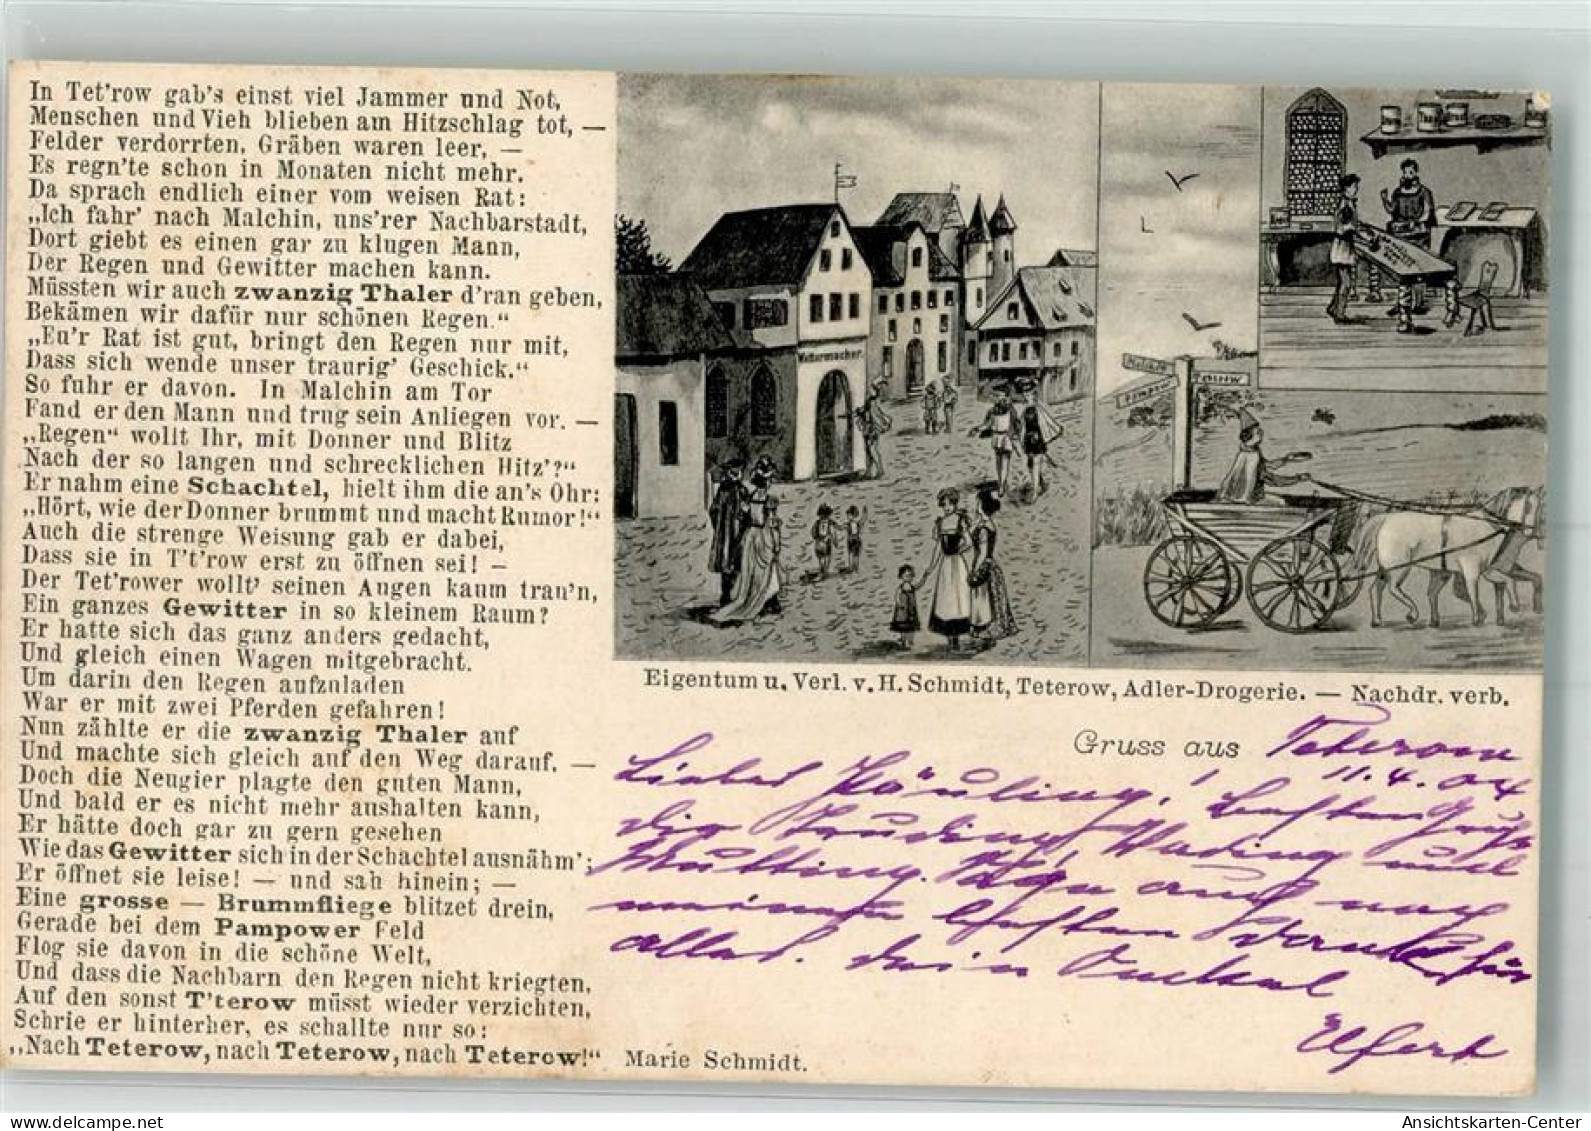 In Tet'row gab's einst viel Jammer und Not,
Menschen und Vieh blieben am Hitzschlag tot, —
Felder verdorrten, Gräben waren leer, —
Es regn'te schon in Monaten nicht mehr.
Da sprach endlich einer vom weisen Rat:
„Ich fahr' nach Malchin, uns'rer Nachbarstadt,
Dort giebt es einen gar zu klugen Mann,
Der Regen und Gewitter machen kann.
Müssten wir auch zwanzig Thaler d'ran geben,
Bekämen wir dafür nur schönen Regen."
„Eu'r Rat ist gut, bringt den Regen nur mit,
Dass sich wende unser traurig' Geschick."
So fuhr er davon. In Malchin am Tor
Fand er den Mann und trug sein Anliegen vor. —
„Regen" wollt Ihr, mit Donner und Blitz
Nach der so langen und schrecklichen Hitz'?"
Er nahm eine Schachtel, hielt ihm die an's Ohr:
„Hört, wie der Donner brummt und macht Rumor!"
Auch die strenge Weisung gab er dabei,
Dass sie in T't'row erst zu öffnen sei! —
Der Tet'rower wollt' seinen Augen kaum trau'n,
Ein ganzes Gewitter in so kleinem Raum?
Er hatte sich das ganz anders gedacht,
Und gleich einen Wagen mitgebracht.
Um darin den Regen aufzuladen
War er mit zwei Pferden gefahren!
Nun zählte er die zwanzig Thaler auf
Und machte sich gleich auf den Weg darauf. —
Doch die Neugier plagte den guten Mann,
Und bald er es nicht mehr aushalten kann,
Er hätte doch gar zu gern gesehen
Wie das Gewitter sich in der Schachtel ausnähm';
Er öffnet sie leise! — und sah hinein; —
Eine grosse — Brummfliege blitzet drein,
Gerade bei dem Pampower Feld
Flog sie davon in die schöne Welt,
Und dass die Nachbarn den Regen nicht kriegten,
Auf den sonst T'terow müsst wieder verzichten,
Schrie er hinterher, es schallte nur so:
„Nach Teterow, nach Teterow, nach Teterow!"
Marie Schmidt.
Wettermacher.
Eigentum u. Verl. v. H. Schmidt, Teterow, Adler-Drogerie. — Nachdr. verb.
Gruss aus Teterow
11.4.04
Liebes Häuling! Besten Gruß
die Truding, Wading und
Mutting. Sage auch noch
meinen besten Dank für
alles. Dein Onkel
Ansichtskarten-Center